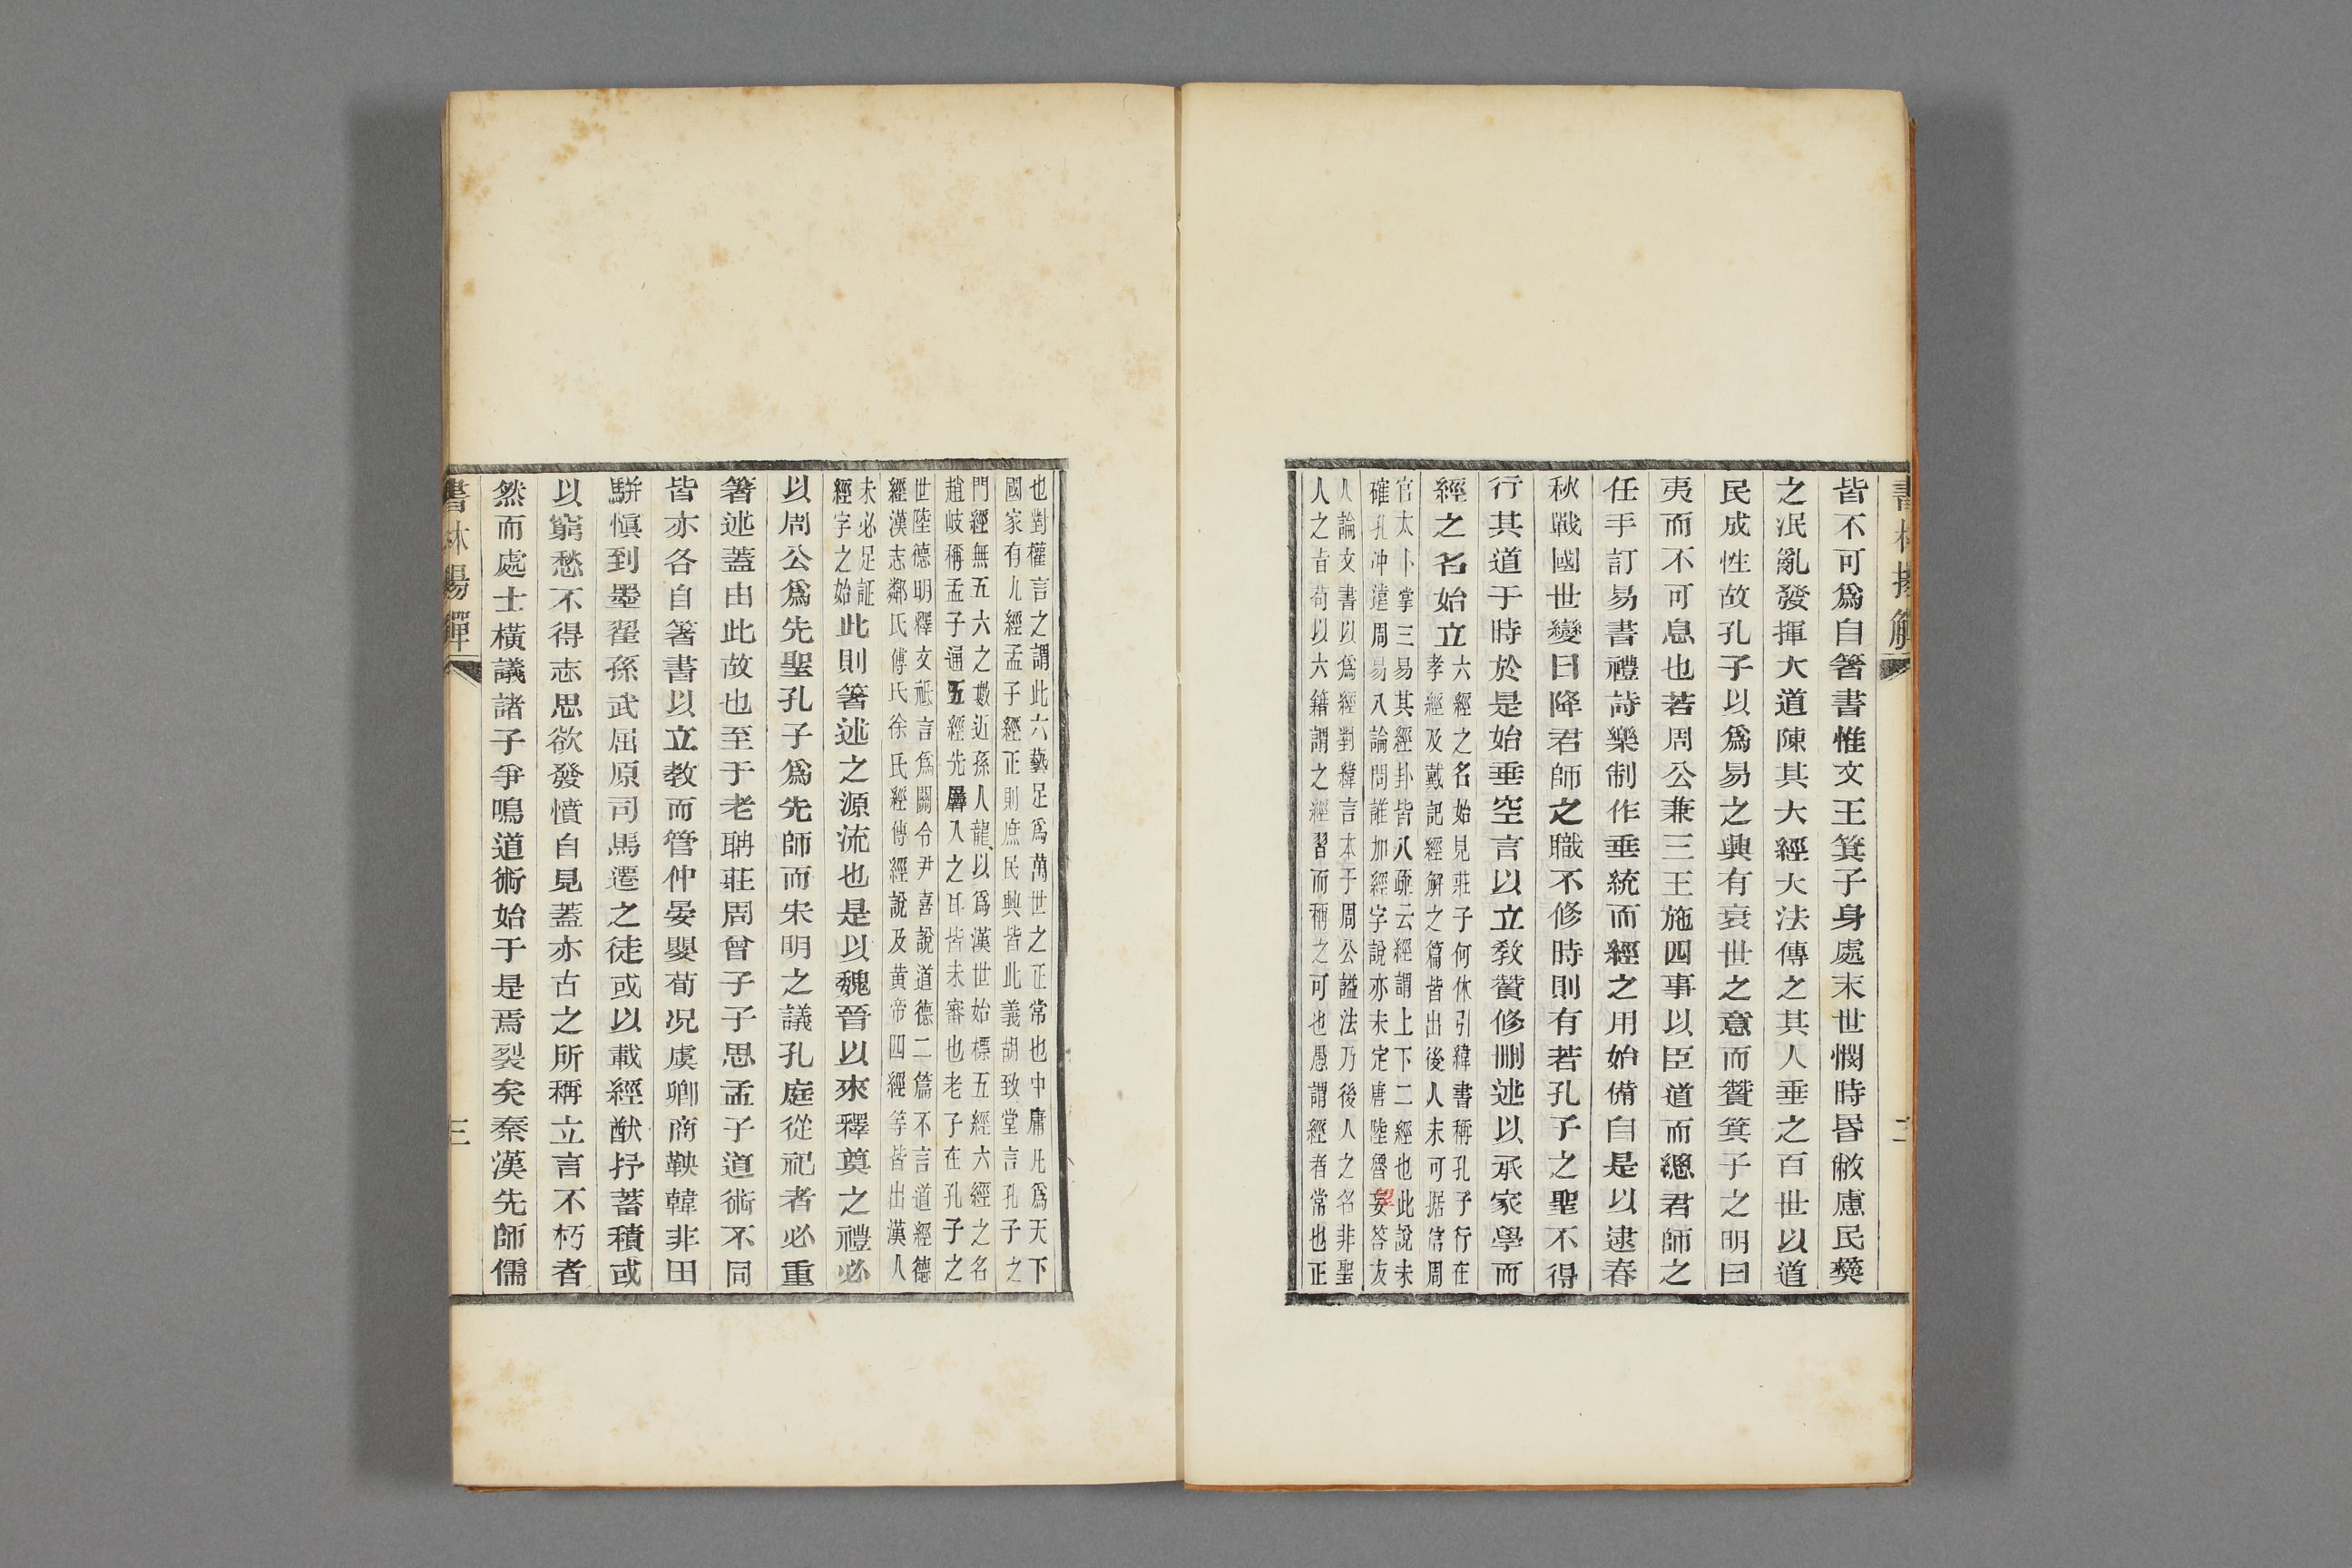 皆不可爲自箸書惟文王箕子身處末世憫時昬敝慮民彝
之泯亂發揮大道陳其大經大法傳之其人垂之百世以道
民成性故孔子以爲易之興有衰世之意而贊箕子之明曰
夷而不可息也若周公兼三王施四事以臣道而總君師之
任手訂易書禮詩樂制作垂統而經之用始備自是以逮春
秋戰國世變日降君師之職不修時則有若孔子之聖不得
行其道于時於是始垂空言以立敎贊修刪述以承家學而
經之名始立
六經之名始見莊子何休引緯書稱孔子行在
孝經及戴記經解之篇皆出後人未可据信周
官太卜掌三易其經卦皆八疏云經謂上下二經也此說未
確孔沖遠周易八論問誰加經字說亦未定唐陸魯望答友
人論文書以爲經對緯言本于周公謚法乃後人之名非聖
人之旨苟以六籍謂之經習而稱之可也愚謂經者常也正
也對權言之謂此六藝足爲萬世之正常也中庸凡爲天下
國家有九經孟子經正則庶民興皆此義胡致堂言孔子之
門經無五六之數近孫人龍以爲漢世始標五經六經之名
趙岐稱孟子通五經先屬入之耳皆未審也老子在孔子之
世陸德明釋文祗言爲關令尹喜說道德二篇不言道經德
經漢志鄰氏傅氏徐氏經傳經說及黃帝四經等皆出漢人
未必足証
經字之始
此則箸述之源流也是以魏晉以來釋奠之禮必
以周公爲先聖孔子爲先師而宋明之議孔庭從祀者必重
箸述蓋由此故也至于老聃莊周曾子子思孟子道術不同
皆亦各自箸書以立敎而管仲晏嬰荀況虞卿商鞅韓非田
駢愼到墨翟孫武屈原司馬遷之徒或以載經猷抒蓄積或
以窮愁不得志思欲發憤自見蓋亦古之所稱立言不朽者
然而處士橫議諸子爭鳴道術始于是焉裂矣秦漢先師儒
書林揚觶
三